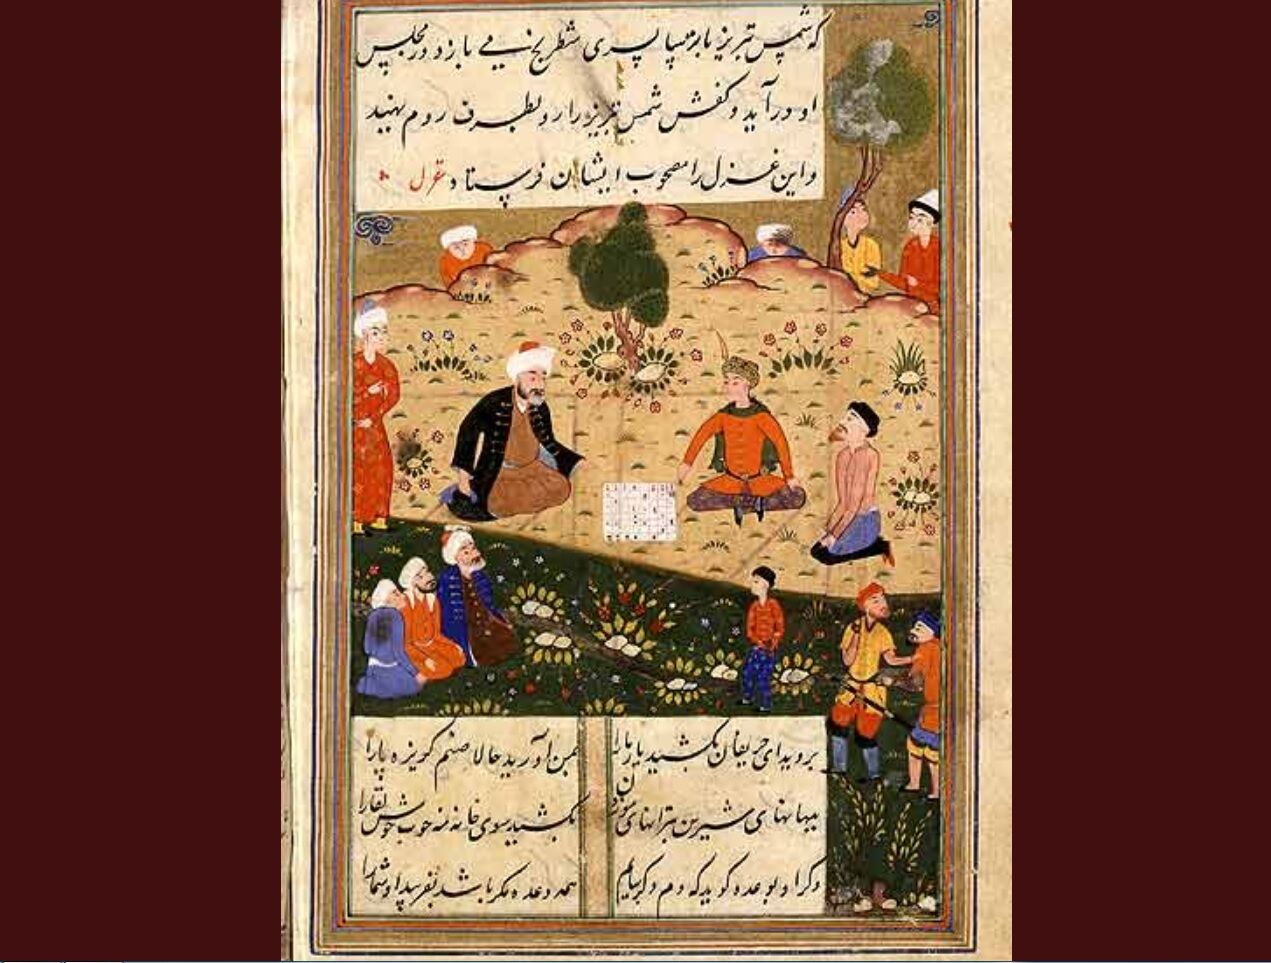 که شمس تبریز با ترسا پسری شطرنج می بازد در مجلس
او درآید و کفش شمس تبریز را رو بطرف روم نهید
و این غزل را مصحوب ایشان فرستاد غزل
بروید ای حریفان بکشید یار ما را
بمن آورید حالا صنم گریزپا را
ببهانهای شیرین بترانهای موزون
بکشید سوی خانه مه خوب خوش لقا را
و گر او بوعده گوید که دم دگر بیایم
همه وعده مکر باشد بفریبد او شما را